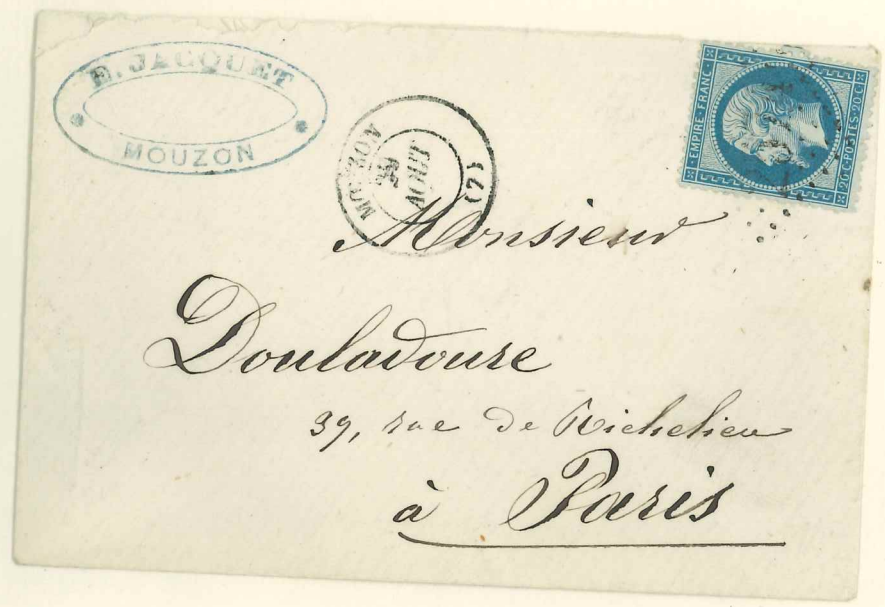 E. JACQUET
MOUZON
MOUZON
AOUT
(7)
EMPIRE · FRANC ·
20 C · POSTES · 20 C
Monsieur
Douladoure
39, rue de Richelieu
à Paris